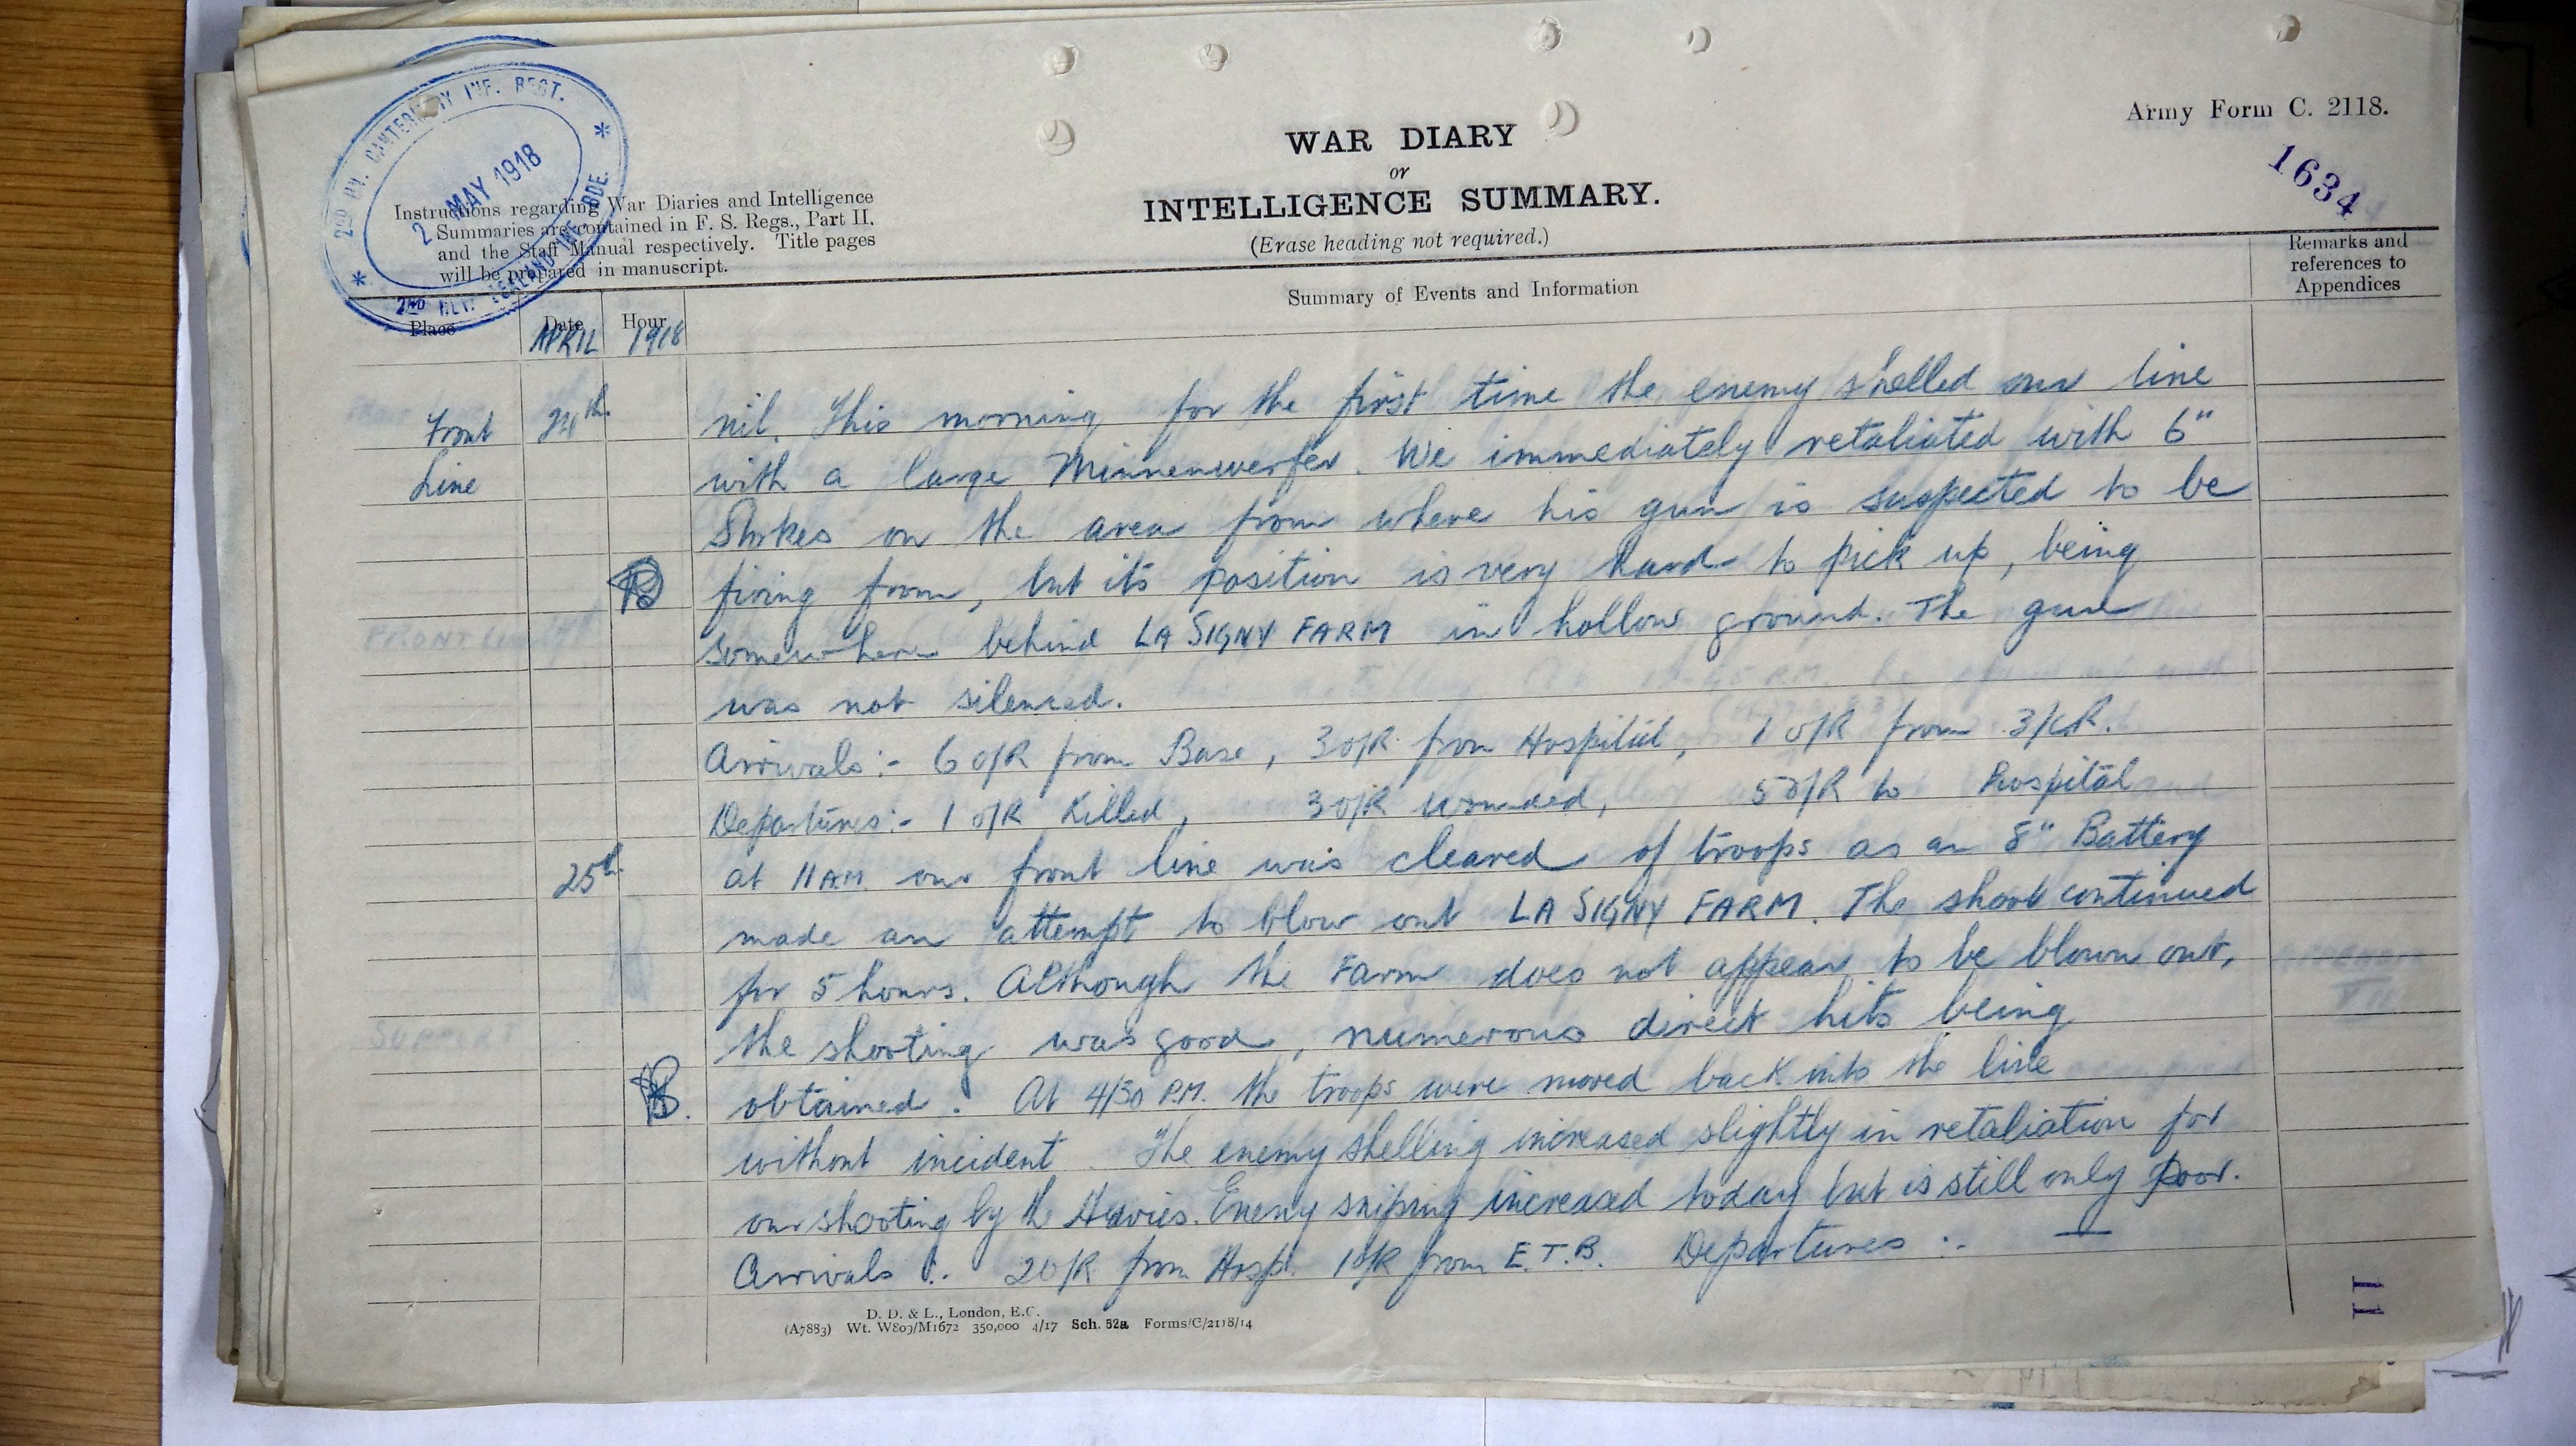 2ND BN. CANTERBURY INF. REGT.
2 MAY 1918
2ND NEW ZEALAND INF. BDE.
Army Form C. 2118.
1634
WAR DIARY
or
INTELLIGENCE SUMMARY.
(Erase heading not required.)
Instructions regarding War Diaries and Intelligence
Summaries are contained in F. S. Regs., Part II.
and the Staff Manual respectively. Title pages
will be prepared in manuscript.
Place Date Hour Summary of Events and Information Remarks and references to Appendices
APRIL 1918
Front 24th. nil. This morning for the first time the enemy shelled our line
Line with a large Minnenwerfer. We immediately retaliated with 6"
Stokes on the area from where his gun is suspected to be
firing from, but its position is very hard to pick up, being
somewhere behind LA SIGNY FARM in hollow ground. The gun
was not silenced.
Arrivals:- 6 O/R from Base, 3 O/R from Hospital, 1 O/R from
Departures:- 1 O/R Killed, 3 O/R wounded, 5 O/R to Hospital
25th. at 11 AM our front line was cleared of troops as an 8" Battery
made an attempt to blow out LA SIGNY FARM. The shoot continued
for 5 hours. Although the Farm does not appear to be blown out,
the shooting was good, numerous direct hits being
obtained. At 4/30 P.M. the troops were moved back into the line
without incident. The enemy shelling increased slightly in retaliation for
our shooting by the Heavies. Enemy sniping increased today but is still only poor.
Arrivals:- 2 O/R from Hosp. 1 O/R from E.T.B. Departures:- —
D. D. & L., London, E.C.
(A7883) Wt. W809/M1672 350,000 4/17 Sch. 52a Forms/C/2118/14
11